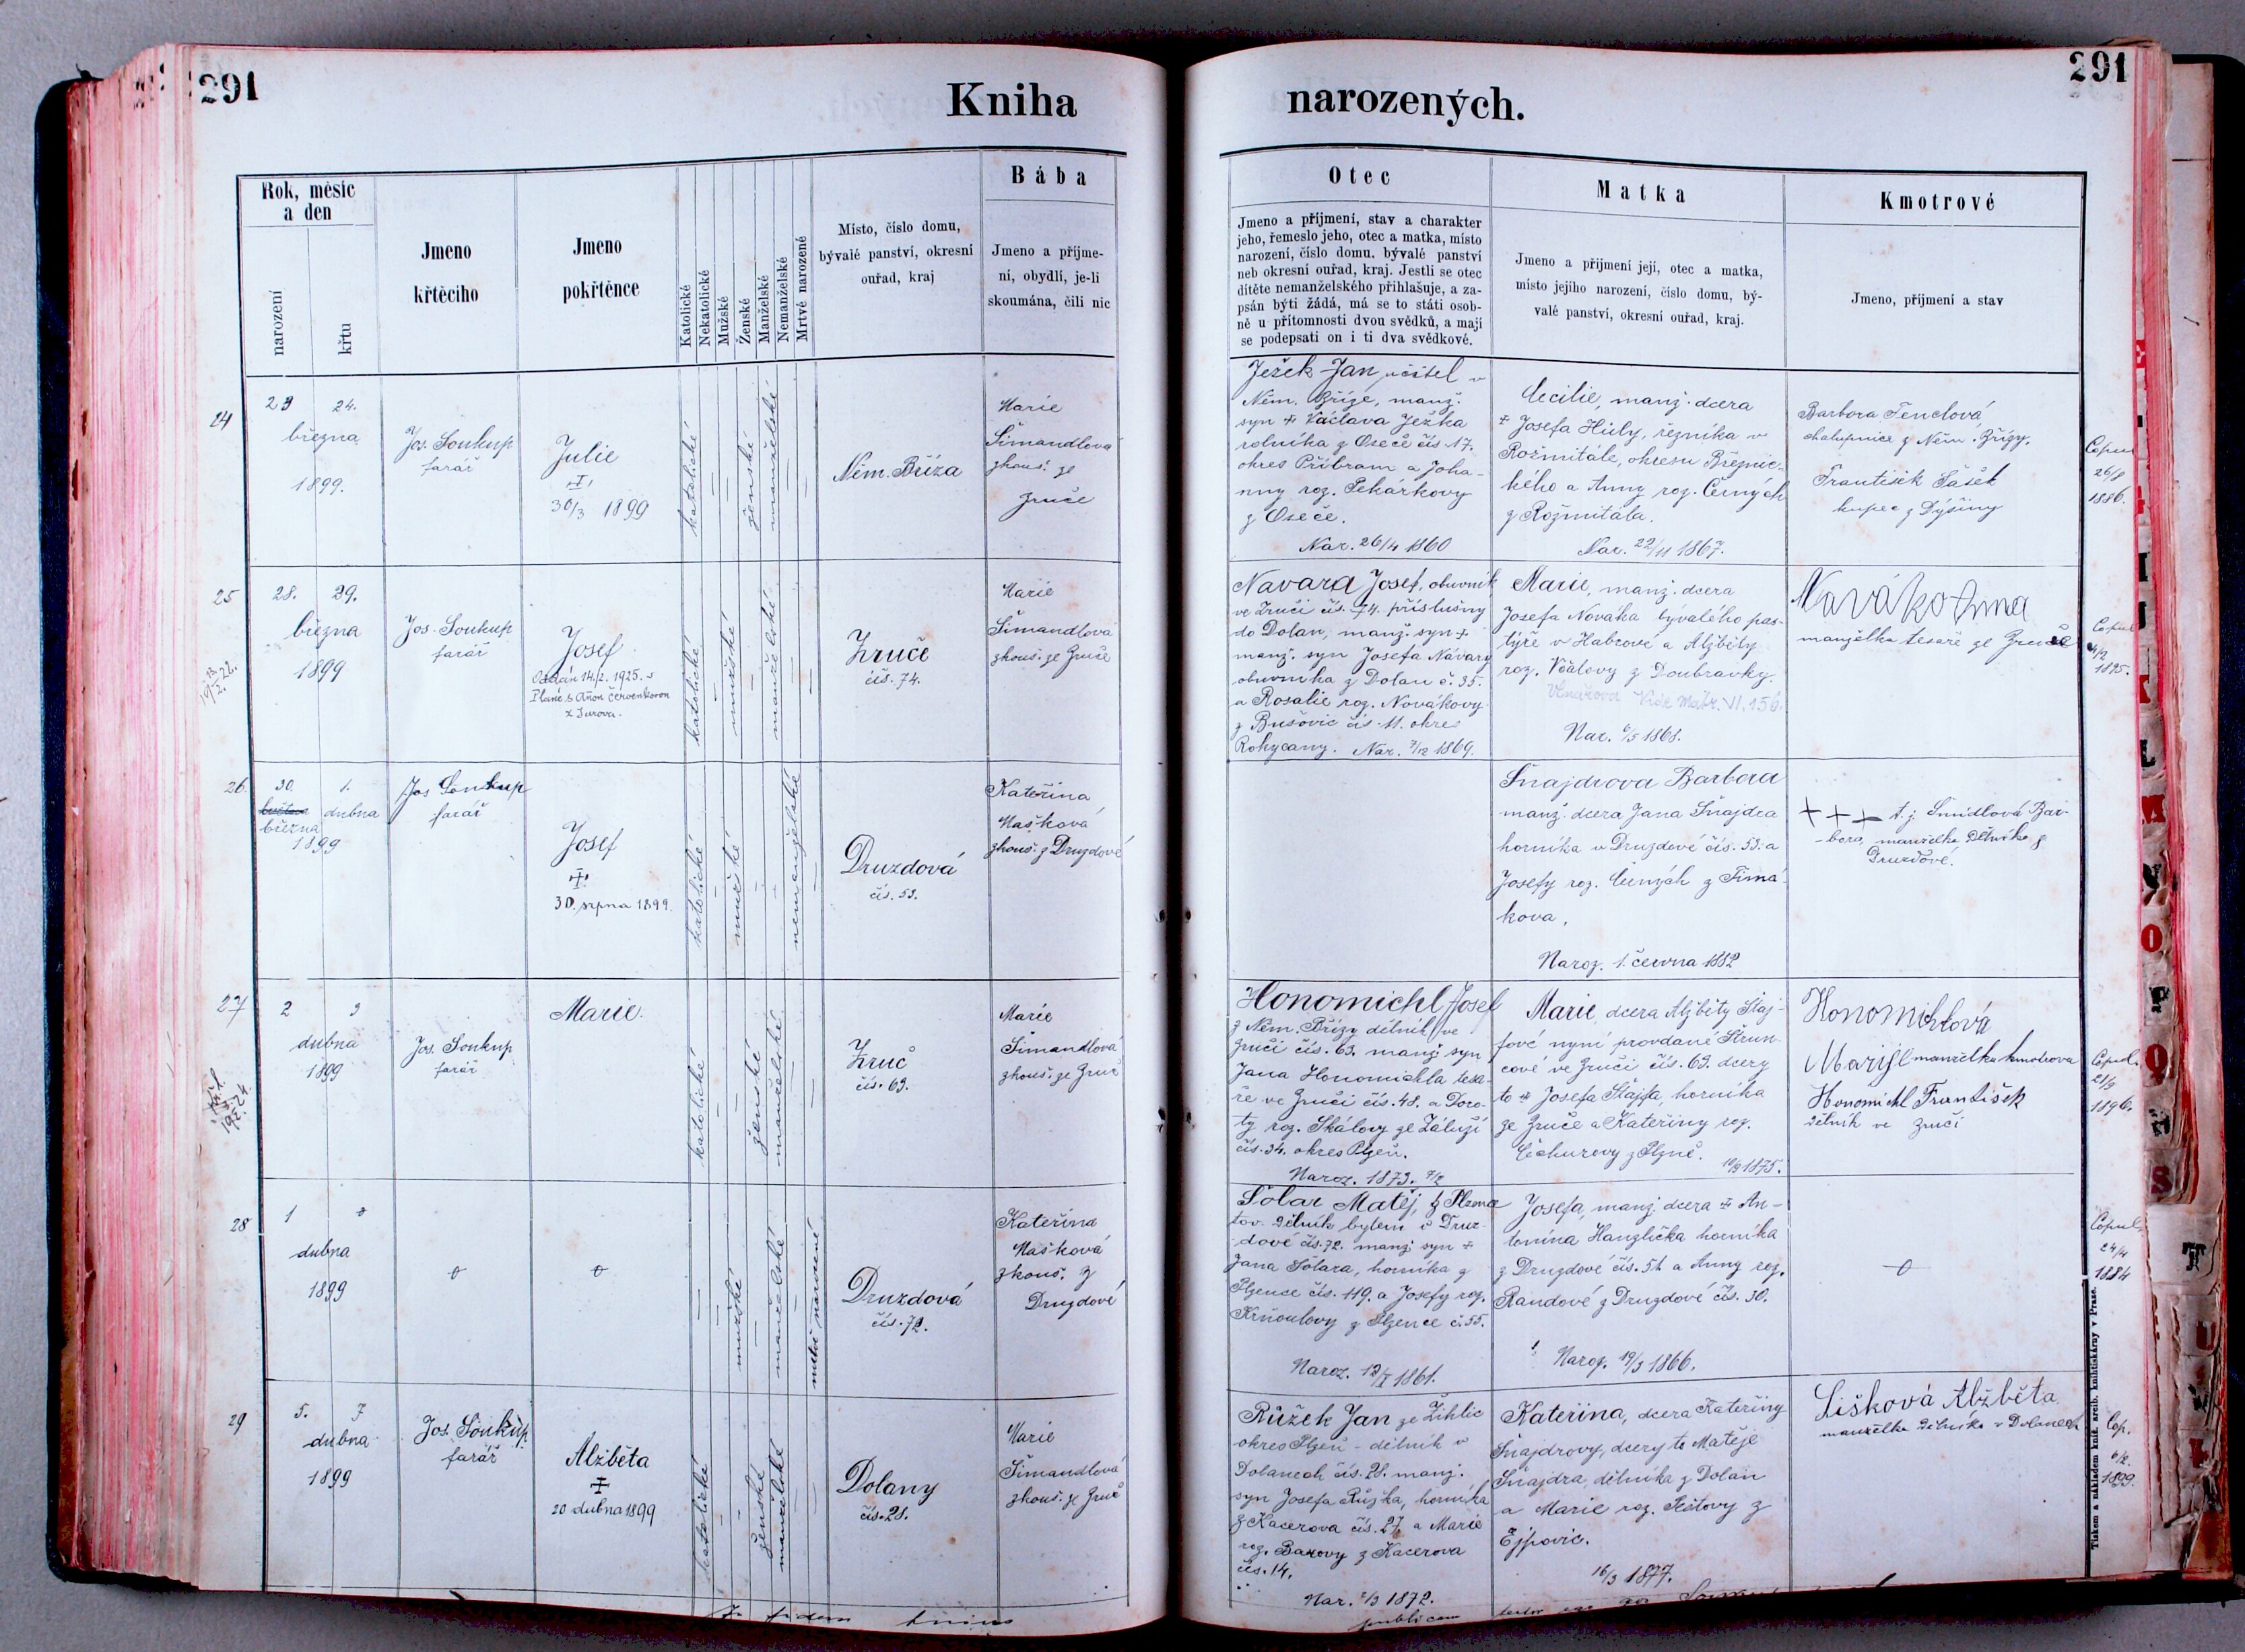 291
Kniha
narozených.
291
Rok, měsíc
a den
narození
křtu
Jmeno
křtěcího
Jmeno
pokřtěnce
Katolické
Nekatolické
Mužské
Ženské
Manželské
Nemanželské
Mrtvě narozené
Místo, číslo domu,
bývalé panství, okresní
ouřad, kraj
Bába
Jmeno a příjme-
ní, obydlí, je-li
skoumána, čili nic
Otec
Jmeno a příjmení, stav a charakter
jeho, řemeslo jeho, otec a matka, místo
narození, číslo domu, bývalé panství
neb okresní ouřad, kraj. Jestli se otec
dítěte nemanželského přihlašuje, a za-
psán býti žádá, má se to státi osob-
ně u přítomnosti dvou svědků, a mají
se podepsati on i ti dva svědkové.
Matka
Jmeno a přijmení její, otec a matka,
místo jejího narození, číslo domu, bý-
valé panství, okresní ouřad, kraj.
Kmotrové
Jmeno, příjmení a stav
24
23 24.
března
1899.
Jos. Soukup
farář
Julie
30/3 1899
katolické
ženské
manželské
Něm. Bříza
Marie
Šimandlová
zkouš. ze
Zruče
Ježek Jan, učitel v
Něm. Bříze, manž.
syn + Václava Ježka
rolníka z Oseče čís. 17.
okres Příbram a Joha-
nny roz. Pekárkovy
z Oseče.
Nar. 26/4 1860
Cecilie, manž. dcera
+ Josefa Hůly, řezníka v
Rožmitále, okresu Březnic-
kého a Anny roz. Černých
z Rožmitála.
Nar. 22/11 1867.
Barbora Tenclová
chalupnice z Něm. Břízy.
František Šašek
kupec z Dýšiny
Copul
26/8
1886.
25
28. 29.
března
1899
Jos. Soukup
farář
Josef
Oddán 14./2. 1925. v
Plané s Annou Červenkovou
z Jarova.
katolické
mužské
manželské
Zruče
čís. 74.
Marie
Šimandlova
zkouš. ze Zruče
Navara Josef, obuvník
ve Zruči čís. 74. příslušný
do Dolan, manž. syn +
manž. syn Josefa Návary
obuvníka z Dolan č. 35.
a Rosalie roz. Novákovy
z Bušovic čís. 11. okres
Rokycany. Nar. 7/12 1869.
Marie, manž. dcera
Josefa Nováka bývalého pas-
týře v Habrové a Alžběty
roz. Včalovy z Doubravky.
Vide Matr. VI. 156.
Nar. 6/5 1868.
Novák Anna
manželka tesaře ze Zruče
Copul
4/2
1895.
26.
30. 1.
března dubna
1899
Jos Soukup
farář
Josef
30. srpna 1899.
katolické
mužské
nemanželské
Druzdová
čís. 53.
Kateřina
Mašková
zkouš. z Druzdové
Šnajdrova Barbora
manž. dcera Jana Šnajdra
horníka v Druzdové čís. 53. a
Josefy roz. Černých z Tima-
kova.
Naroz. 1. června 1882
+ + + t. j. Šmidlová Bar-
bora, manželka dělníka z
Druzdové.
27
2 3
dubna
1899
Jos. Soukup
farář
Marie.
katolické
ženské
manželské
Zruč
čís. 63.
Marie
Šimandlová
zkouš. ze Zruč
Honomichl Josef
z Něm. Břízy dělník ve
Zruči čís. 63. manž. syn
Jana Honomichla tesa-
ře ve Zruči čís. 48. a Doro-
ty roz. Skálovy ze Záluží
čís. 34. okres Plzeň.
Naroz. 1873. 4/2
Marie, dcera Alžběty Štaj-
fové nyní provdané Strun-
cové ve Zruči čís. 63. dcery
to + Josefa Štajfa, horníka
ze Zruče a Kateřiny roz.
Čechurovy z Plzně.
10/9 1875.
Honomichlová
Marije manželka kmotrova
Honomichl František
dělník ve Zruči
Copul.
21/9
1896.
28
1
dubna
1899
mužské
manželské
mrtvě narozené
Druzdová
čís. 72.
Kateřina
Mašková
zkouš. z
Druzdové
Šolar Matěj, z Plzence
tov. dělník bytem v Druz-
dové čís. 72. manž. syn +
Jana Šolara, horníka z
Plzence čís. 119. a Josefy roz.
Krňoulovy z Plzence č. 55.
Josefa, manž. dcera + An-
tonína Hanzlíčka horníka
z Druzdové čís. 51 a Anny roz.
Randové z Druzdové čís. 30.
Naroz. 19/3 1866.
Copul.
24/4
1884
29
5. 7
dubna
1899
Jos. Soukup
farář
Alžběta
20 dubna 1899
katolické
ženské
manželské
Dolany
čís. 28.
Marie
Šimandlová
zkouš. ze Zruč
Růžek Jan ze Žihlic
okres Plzeň - dělník v
Dolanech čís. 28. manž.
syn Josefa Růžka, horníka
z Kacerova čís. 27. a Marie
roz. Baxovy z Kacerova
čís. 14.
Nar. 2/3 1872.
Kateřina, dcera Kateřiny
Šnajdrovy, dcery to Matěje
Šnajdra, dělníka z Dolan
a Marie roz. Peštovy z
Ejpovic.
16/3 1877.
Lišková Alžběta
manželka dělníka v Dolanech
Cop.
6/2.
1899.
Tiskem a nákladem kníž. arcib. knihtiskárny v Praze.
In fidem hujus
publicam